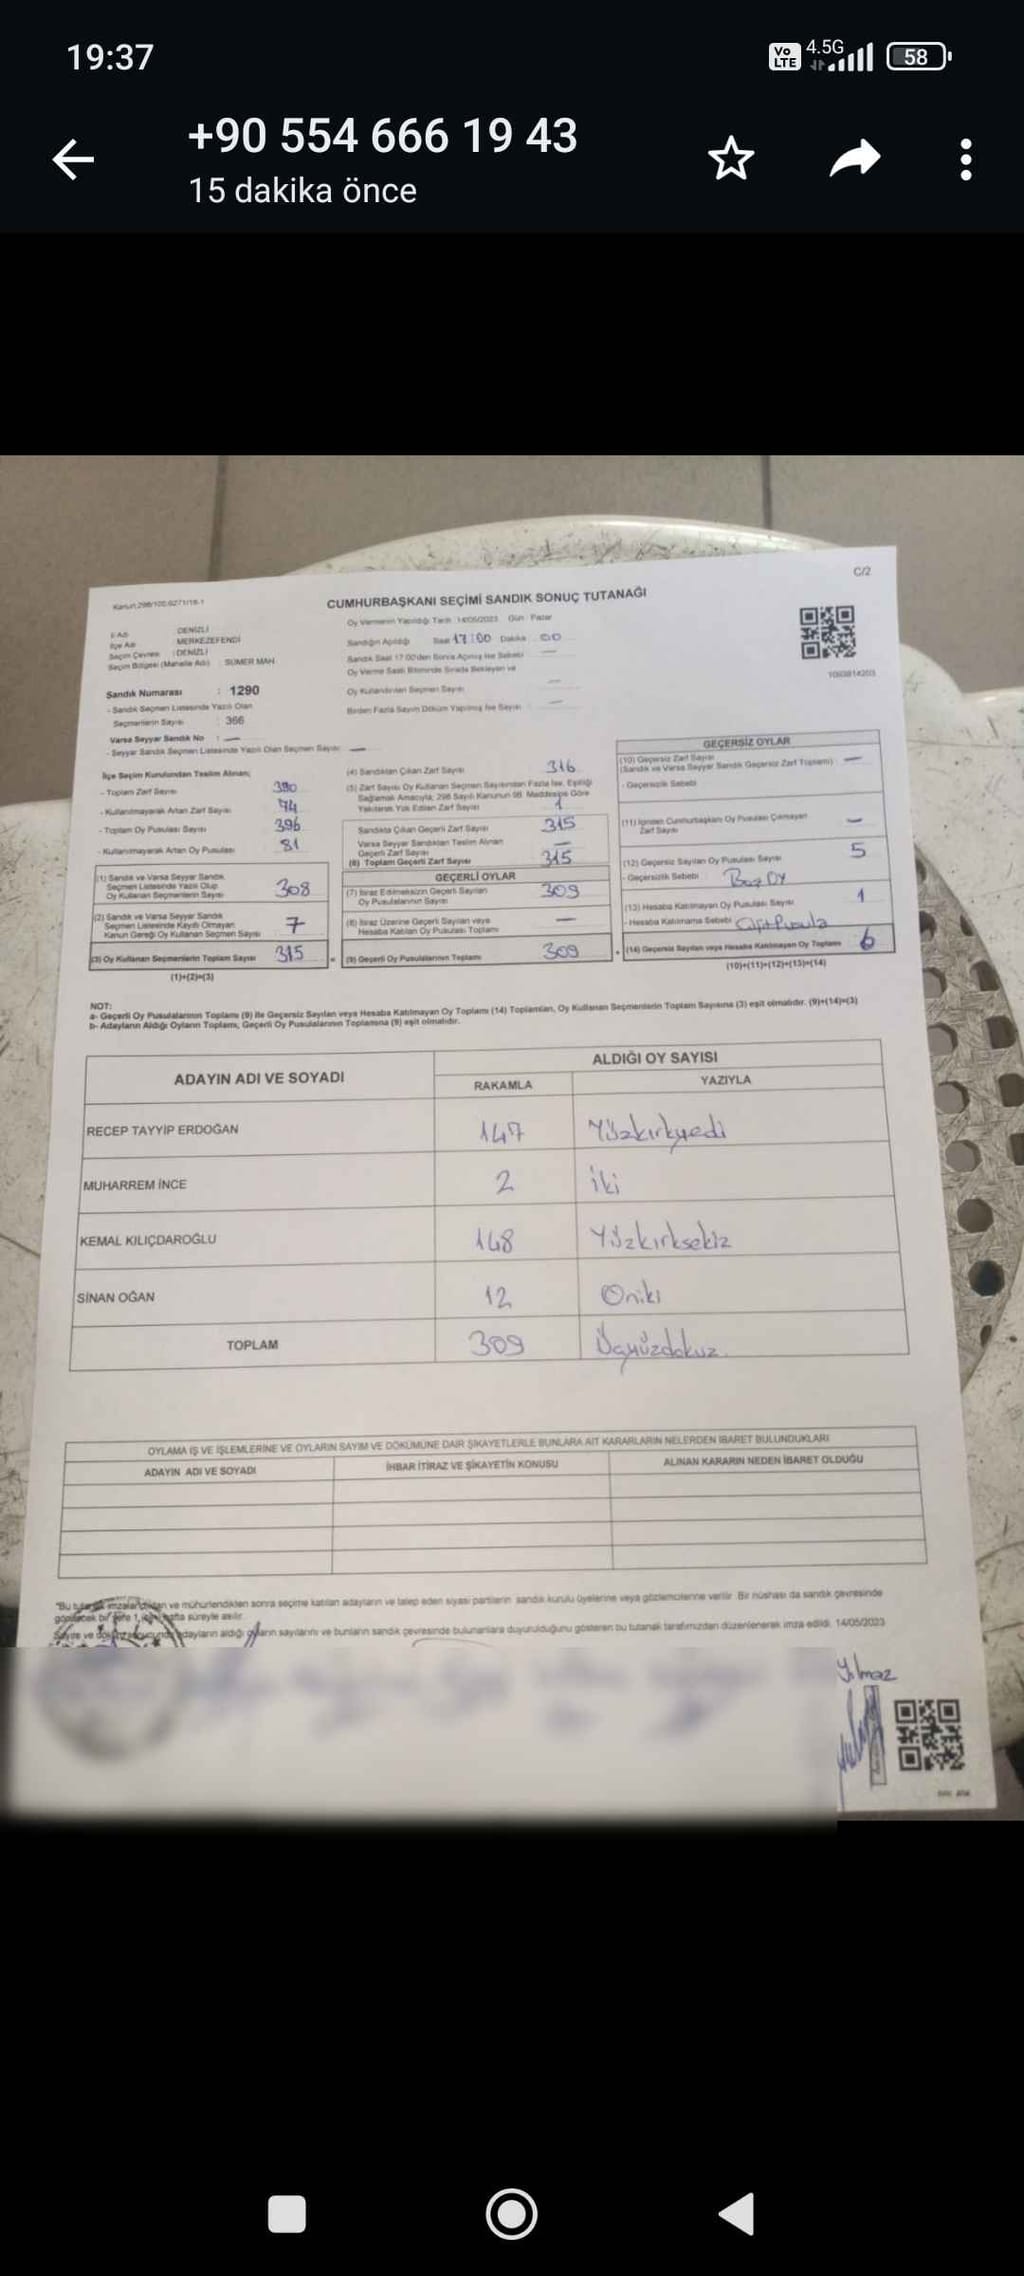 19:37
Vo LTE 4.5G 58
+90 554 666 19 43
15 dakika önce
C/2
CUMHURBAŞKANI SEÇİMİ SANDIK SONUÇ TUTANAĞI
Oy Vermenin Yapıldığı Tarih 14/05/2023 Gün Pazar
İl Adı DENİZLİ
İlçe Adı MERKEZEFENDİ
Seçim Çevresi : DENİZLİ
Seçim Bölgesi (Mahalle Adı) SÜMER MAH.
Sandığın Açıldığı Saat 17:00 Dakika 00
Sandık Saat 17:00'den Sonra Açılmış İse Sebebi —
Oy Verme Saati Bitiminde Sırada Bekleyen ve
Oy Kullandırılan Seçmen Sayısı —
Birden Fazla Sayım Döküm Yapılmış İse Sayısı —
Sandık Numarası : 1290
- Sandık Seçmen Listesinde Yazılı Olan
Seçmenlerin Sayısı : 366
Varsa Seyyar Sandık No : —
- Seyyar Sandık Seçmen Listesinde Yazılı Olan Seçmen Sayısı —
İlçe Seçim Kurulundan Teslim Alınan;
- Toplam Zarf Sayısı 390
- Kullanılmayarak Artan Zarf Sayısı 74
- Toplam Oy Pusulası Sayısı 396
- Kullanılmayarak Artan Oy Pusulası 81
(1) Sandık ve Varsa Seyyar Sandık
Seçmen Listesinde Yazılı Olup
Oy Kullanan Seçmenlerin Sayısı 308
(2) Sandık ve Varsa Seyyar Sandık
Seçmen Listesinde Kayıtlı Olmayan
Kanun Gereği Oy Kullanan Seçmen Sayısı 7
(3) Oy Kullanan Seçmenlerin Toplam Sayısı 315
(1)+(2)=(3)
(4) Sandıktan Çıkan Zarf Sayısı 316
(5) Zarf Sayısı Oy Kullanan Seçmen Sayısından Fazla İse, Eşitliği
Sağlamak Amacıyla, 298 Sayılı Kanunun 98. Maddesine Göre
Yakılarak Yok Edilen Zarf Sayısı 1
Sandıkta Çıkan Geçerli Zarf Sayısı 315
Varsa Seyyar Sandıktan Teslim Alınan
Geçerli Zarf Sayısı —
(6) Toplam Geçerli Zarf Sayısı 315
GEÇERLİ OYLAR
(7) İtiraz Edilmeksizin Geçerli Sayılan
Oy Pusulalarının Sayısı 309
(8) İtiraz Üzerine Geçerli Sayılan veya
Hesaba Katılan Oy Pusulası Toplamı —
= (9) Geçerli Oy Pusulalarının Toplamı 309
GEÇERSİZ OYLAR
(10) Geçersiz Zarf Sayısı
(Sandık ve Varsa Seyyar Sandık Geçersiz Zarf Toplamı) —
- Geçersizlik Sebebi
(11) İçinden Cumhurbaşkanı Oy Pusulası Çıkmayan
Zarf Sayısı —
(12) Geçersiz Sayılan Oy Pusulası Sayısı 5
- Geçersizlik Sebebi Boş Oy
(13) Hesaba Katılmayan Oy Pusulası Sayısı 1
- Hesaba Katılmama Sebebi Çift Pusula
+ (14) Geçersiz Sayılan veya Hesaba Katılmayan Oy Toplamı 6
(10)+(11)+(12)+(13)=(14)
NOT:
a- Geçerli Oy Pusulalarının Toplamı (9) ile Geçersiz Sayılan veya Hesaba Katılmayan Oy Toplamı (14) Toplamları, Oy Kullanan Seçmenlerin Toplam Sayısına (3) eşit olmalıdır. (9)+(14)=(3)
b- Adayların Aldığı Oyların Toplamı, Geçerli Oy Pusulalarının Toplamına (9) eşit olmalıdır.
ADAYIN ADI VE SOYADI ALDIĞI OY SAYISI
RAKAMLA YAZIYLA
RECEP TAYYİP ERDOĞAN 147 Yüzkırkyedi
MUHARREM İNCE 2 İki
KEMAL KILIÇDAROĞLU 148 Yüzkırksekiz
SİNAN OĞAN 12 Oniki
TOPLAM 309 Üçyüzdokuz
OYLAMA İŞ VE İŞLEMLERİNE VE OYLARIN SAYIM VE DÖKÜMÜNE DAİR ŞİKAYETLERLE BUNLARA AİT KARARLARIN NELERDEN İBARET BULUNDUKLARI
ADAYIN ADI VE SOYADI İHBAR İTİRAZ VE ŞİKAYETİN KONUSU ALINAN KARARIN NEDEN İBARET OLDUĞU
ve mühürlendikten sonra seçime katılan adayların ve talep eden siyasi partilerin sandık kurulu üyelerine veya gözlemcilerine verilir. Bir nüshası da sandık çevresinde
hafta süreyle asılır.
adayların aldığı oyların sayılarını ve bunların sandık çevresinde bulunanlara duyurulduğunu gösteren bu tutanak tarafımızdan düzenlenerek imza edildi. 14/05/2023
Yılmaz